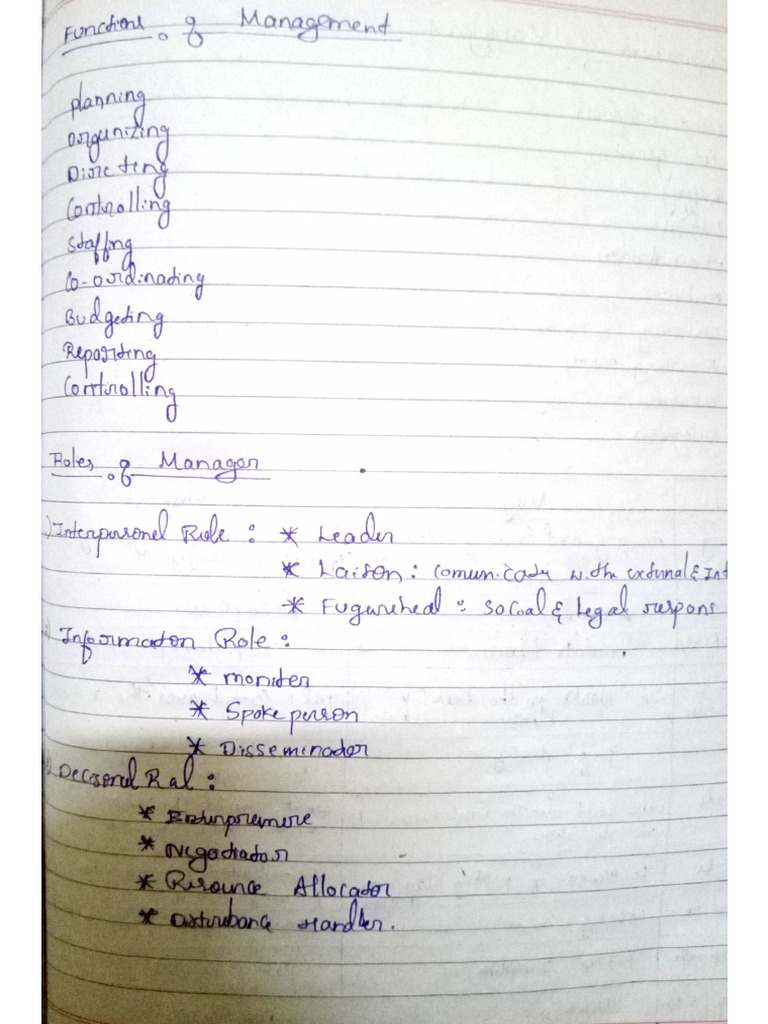 Functions of Management
planning
organizing
Directing
Controlling
Staffing
Co-ordinating
Budgeting
Reporting
Controlling
Roles of Manager
Interpersonel Role : * Leader
* Laison : Comunicady with external & Int
* Fugurehead : Social & Legal respons
Information Role :
* moniter
* Spoke person
* Disseminador
Decisonel Ral :
* Enterpremere
* Negotiator
* Risource Allocator
* Disturbance Handler.